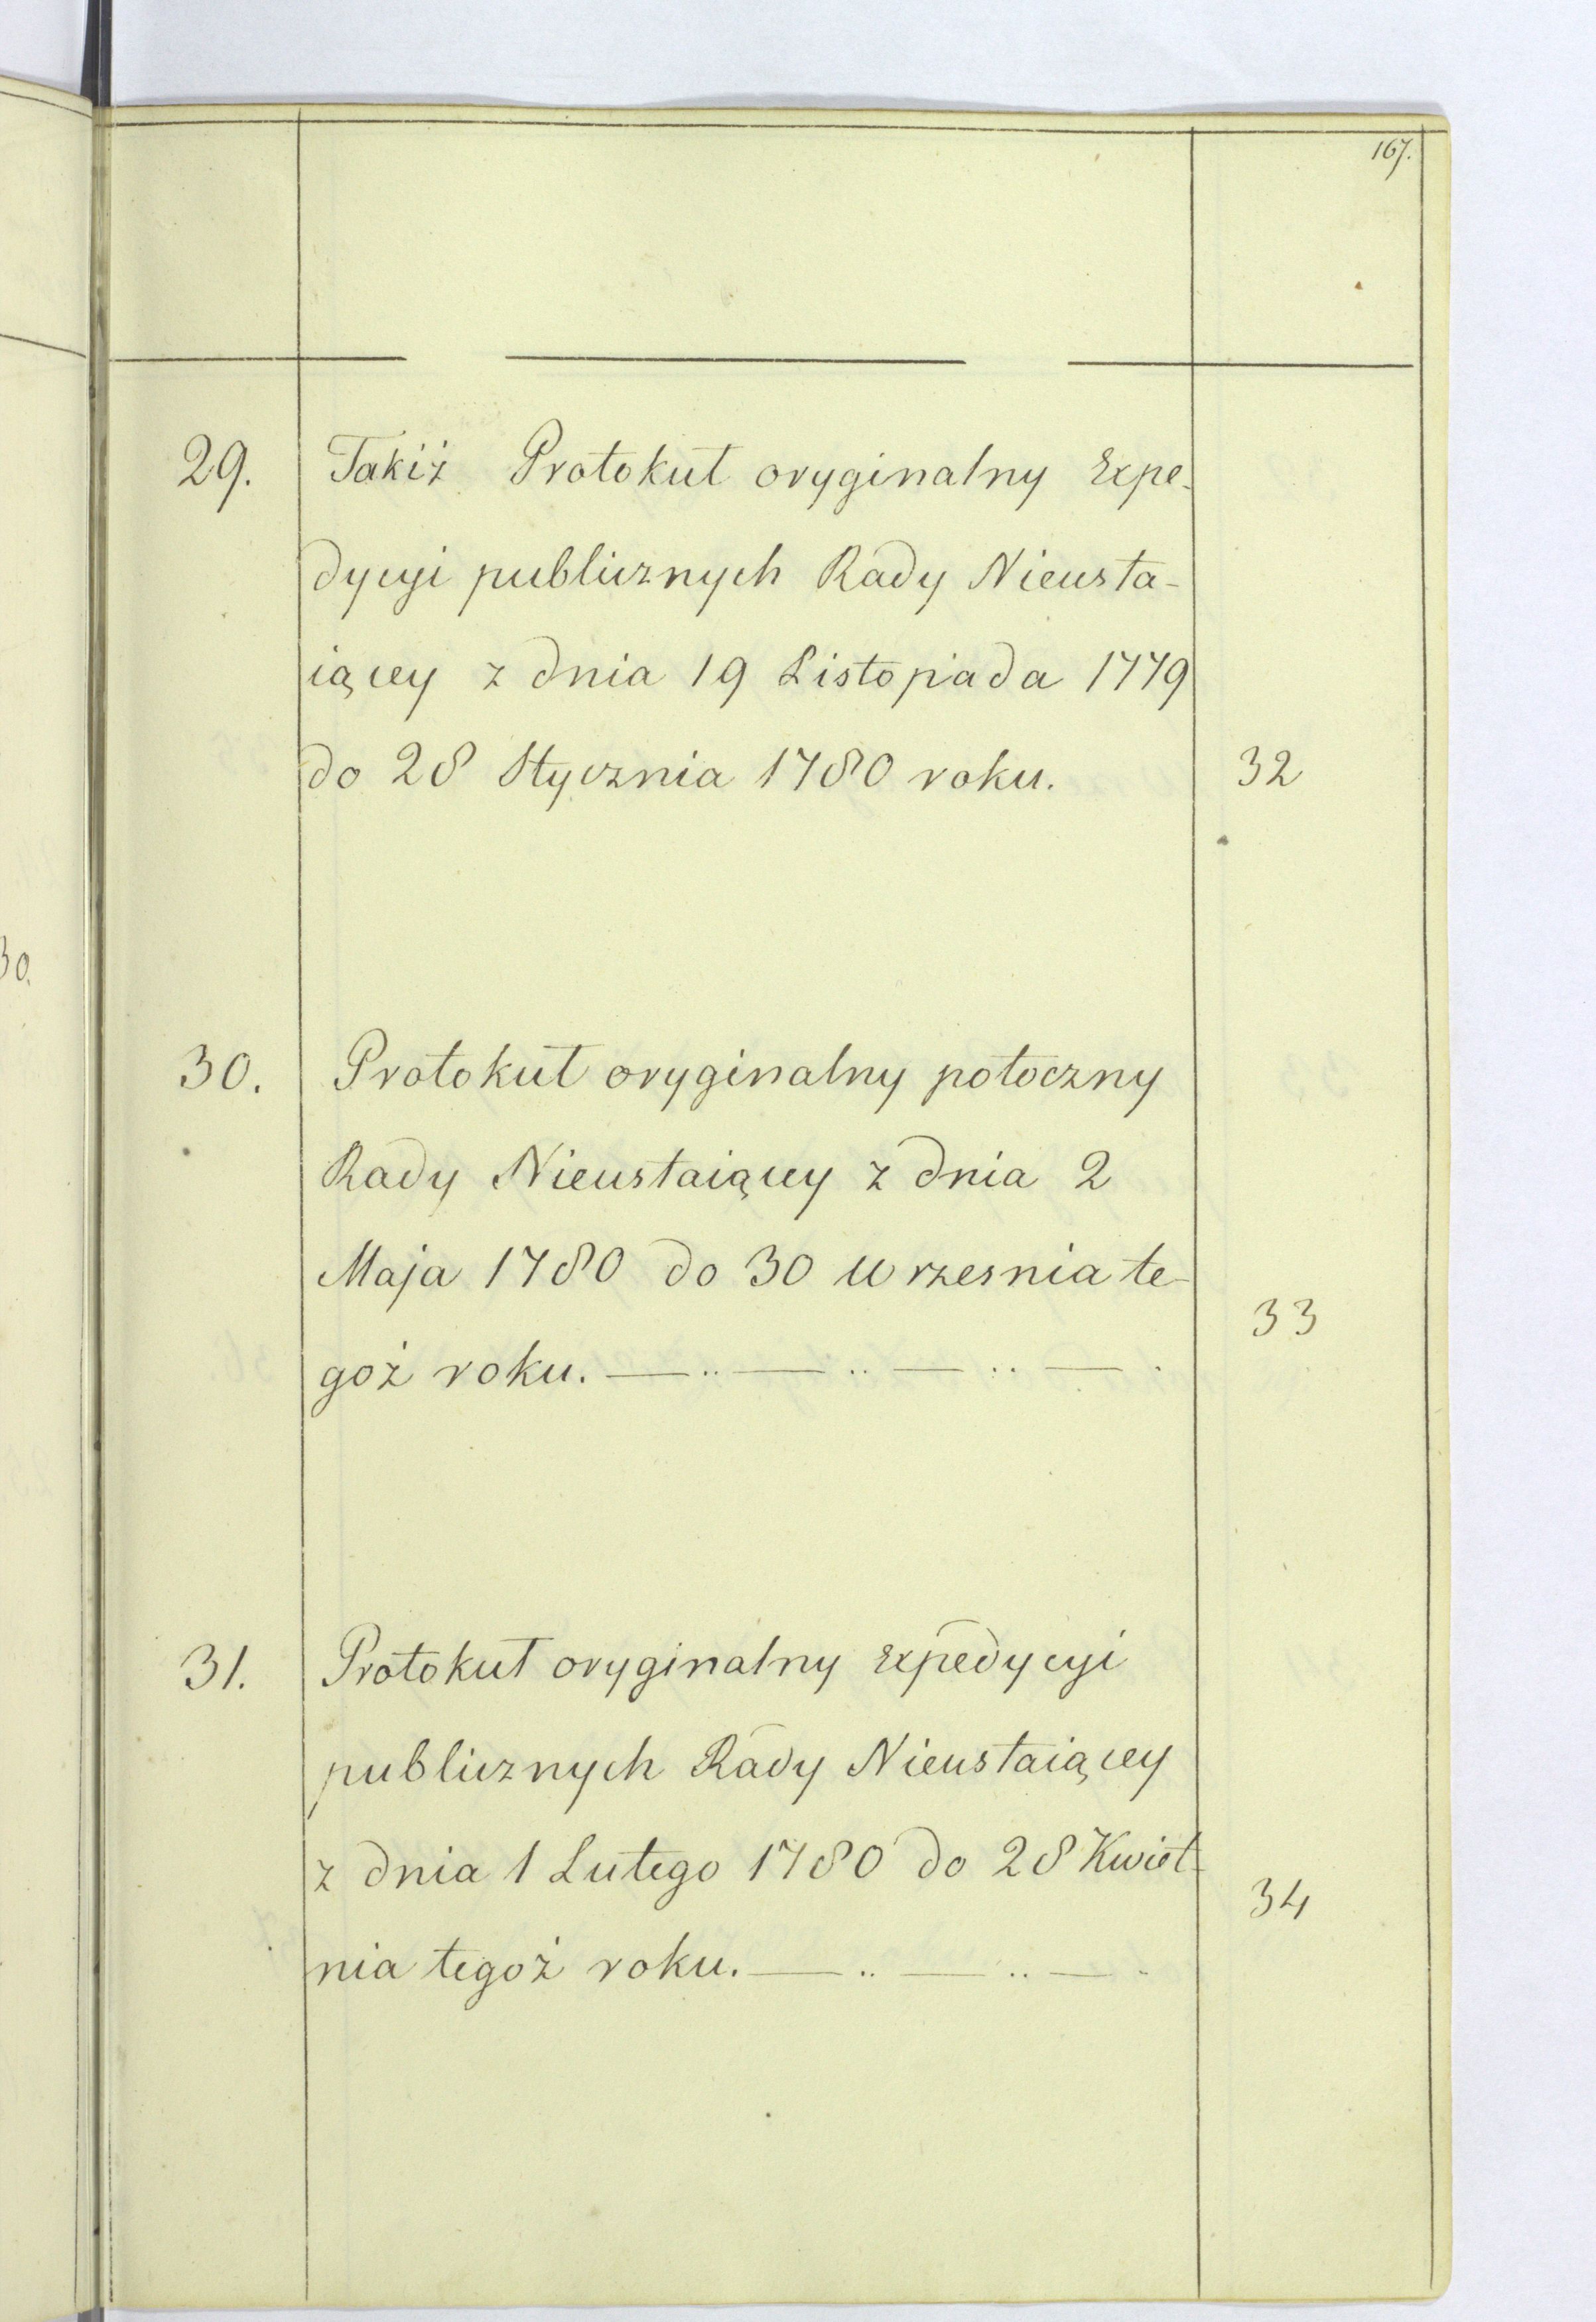 167.
29. Takiż Protokuł oryginalny Expe-
dycyi publicznych Rady Nieusta-
iącey z dnia 19 Listopada 1779
do 28 Stycznia 1780 roku. 32
30.
30. Protokuł oryginalny potoczny
Rady Nieustaiącey z dnia 2
Maja 1780 do 30 Wrzesnia te-
33
goż roku. — .. — .. — .. — .
31. Protokuł oryginalny Expedycyi
publicznych Rady Nieustaiącey
z dnia 1 Lutego 1780 do 28 Kwiet-
34
nia tegoż roku. — .. — .. — -